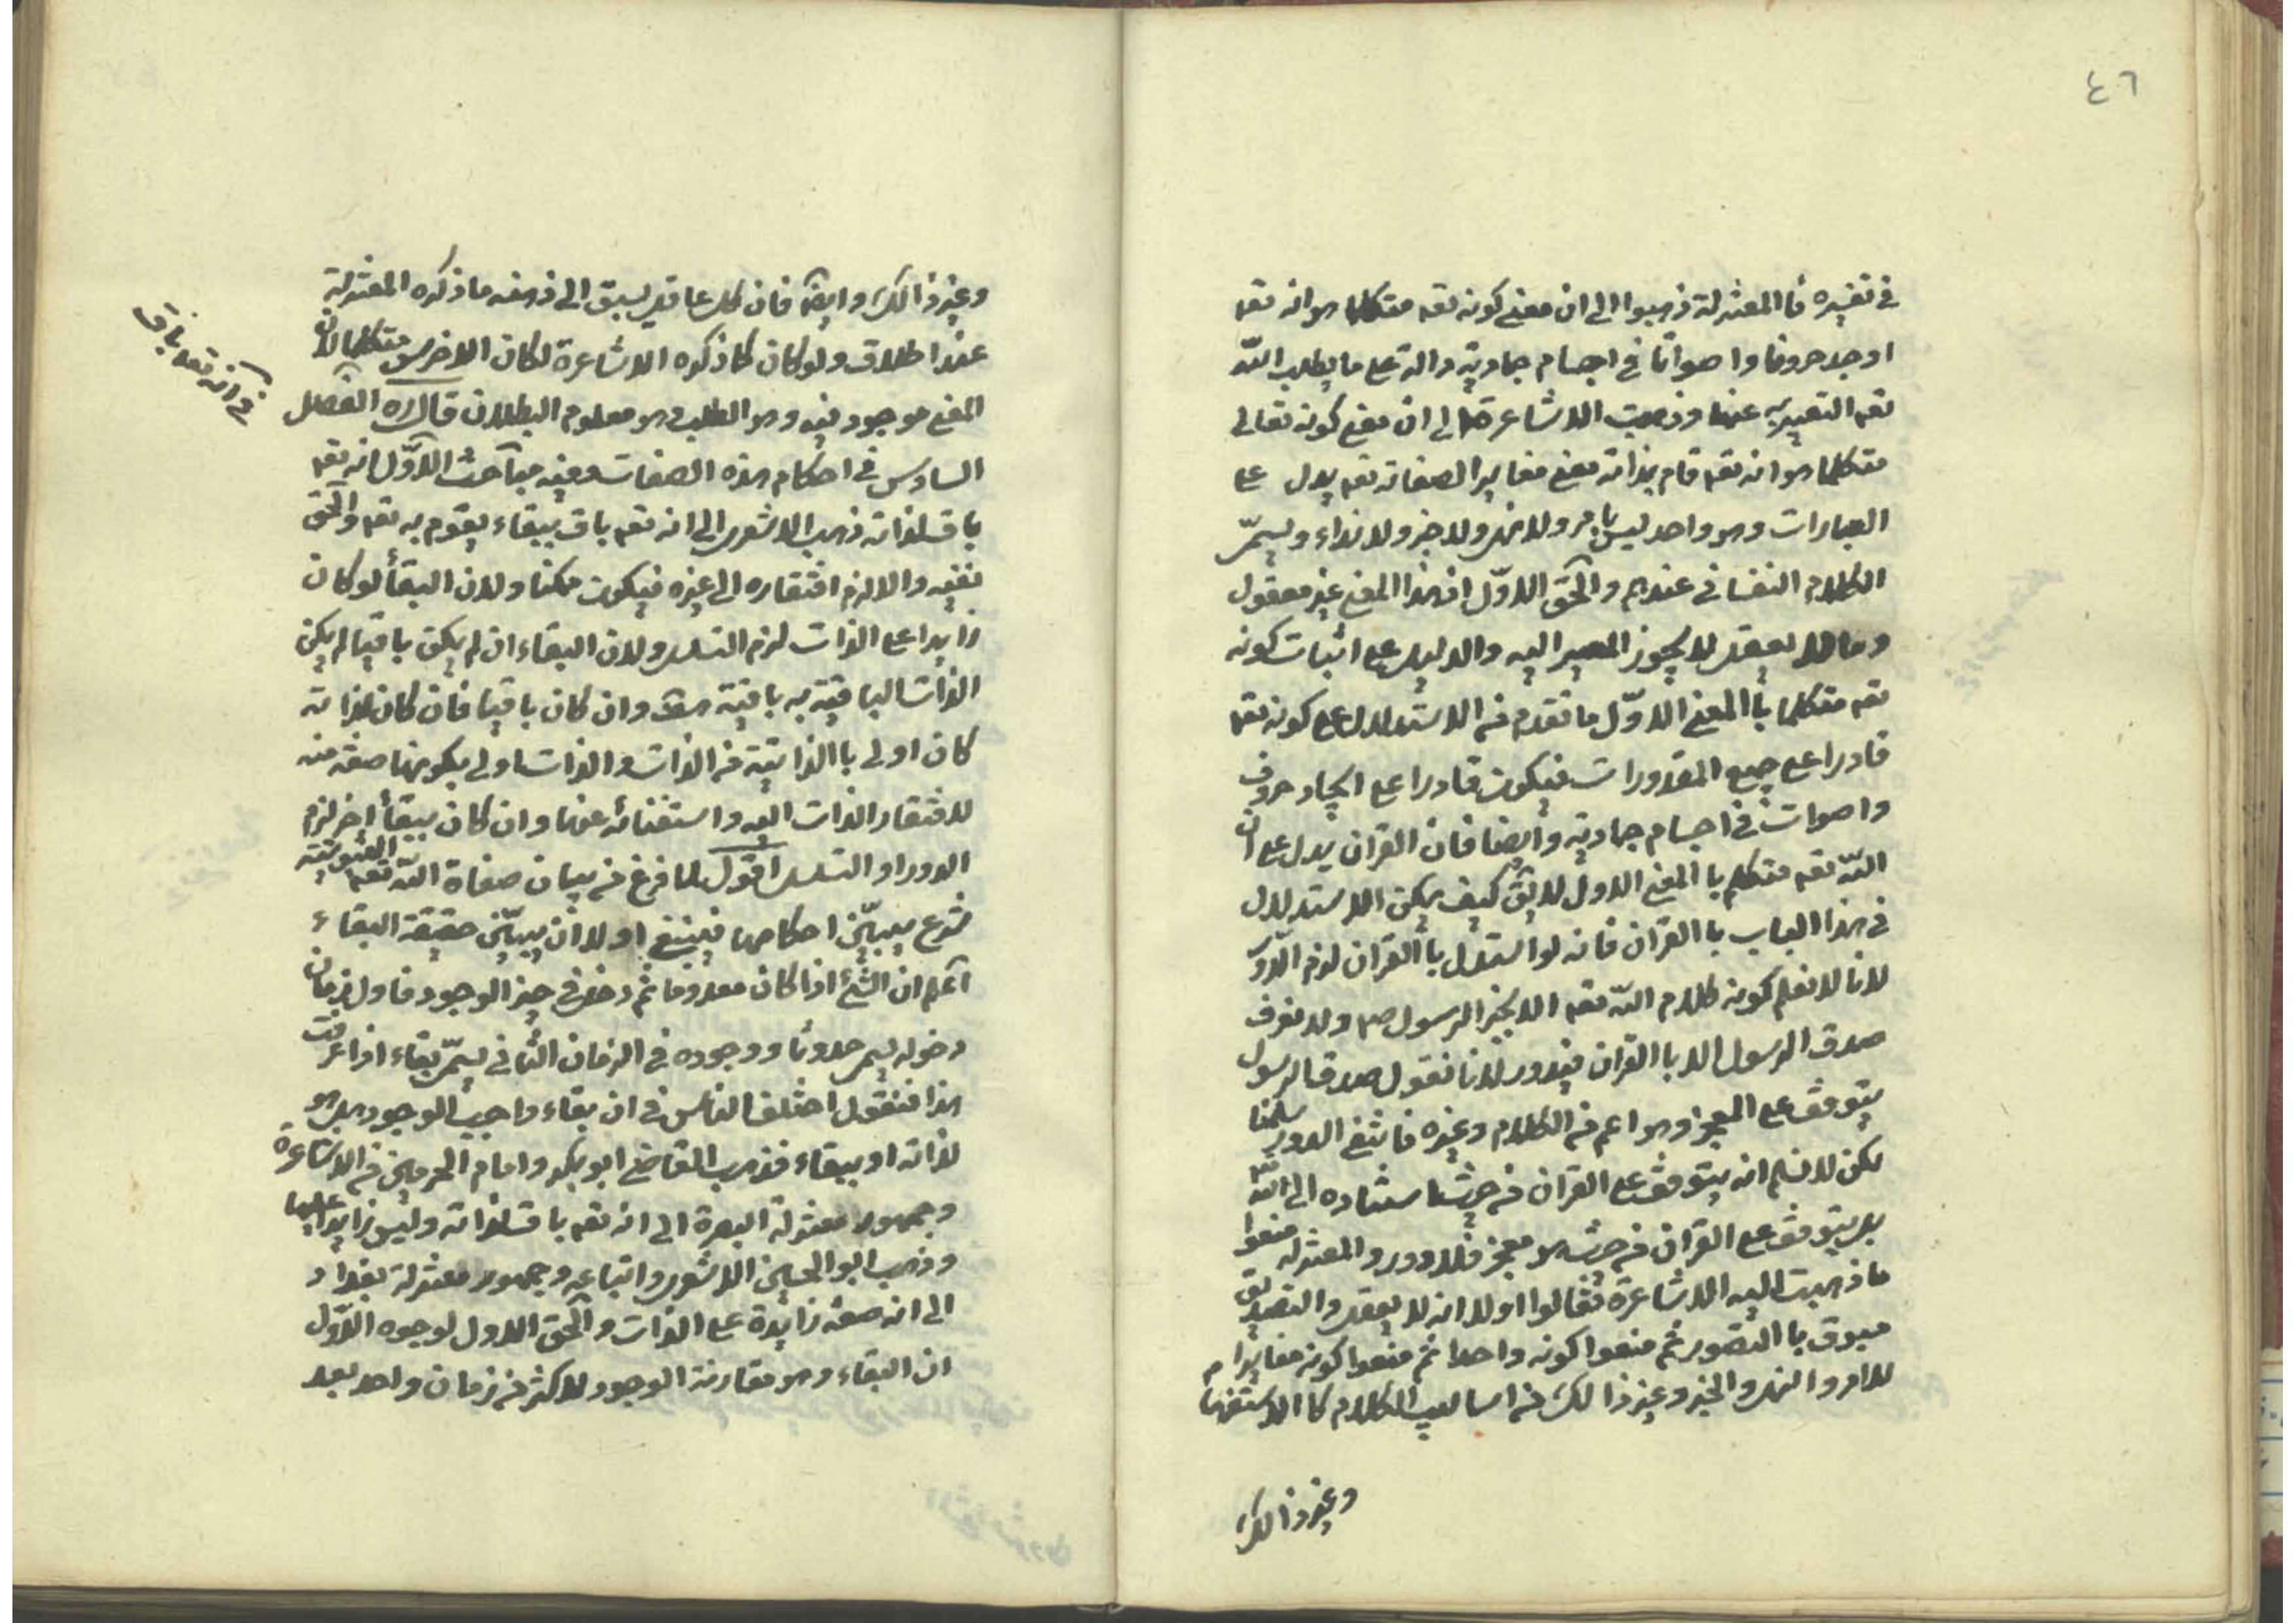 ٤٦
في تفسيره فا المعتزلة ذهبوا الى ان معنى كونه تعه متكلما هو انه تعه
اوجد حروفا واصواتا في اجسام جمادية دالة على ما يطلب الله
تعه التعبير به عنها وذهبت الاشاعرة الى ان معنى كونه تعالى
متكلما هو انه تعه قام بذاته معنى مغاير الصفاته تعه يدل على
العبارات وهو واحد ليس بامر ولا نهى ولا خبر ولا نداء ويسمّى
الكلام النفساني عندهم والحق الاوّل اذ هذا المعنى غير معقول
وما لا يعقل لا يجوز المصير اليه والدليل على اثبات كونه
تعه متكلما با المعنى الاوّل ما تقدم من الاستدلال على كونه تعه
قادرا على جميع المقدورات فيكون قادرا على ايجاد حروف
واصوات في اجسام جمادية وايضا فان القران يدل على ان
الله تعه متكلم با المعنى الاول لا يق كيف يمكن الاستدلال
في هذا الباب با القران فانه لو استدل با القران لزم الدّور
لانا لا نعلم كونه كلام الله تعه الا بخبر الرسول صه ولا نعرف
صدق الرسول الا با القران فيدور لانا نقول صدق الرسول
يتوقف على المعجز وهو اعم من الكلام وغيره فانتفى الدور سلمنا
لكن لا نسلم انه يتوقف على القران من حيث استناده الى الله
بل يتوقف على القران من حيث هو معجز فلا دور والمعتزله منعوا
ما ذهبت اليه الاشاعرة فقالوا اولا انه لا يعقل والتصديق
مسبوق با التصور ثم منعوا كونه واحدا ثم منعوا كونه مغايرا
للامر والنهى والخبر وغير ذالك من اساليب الكلام كا الاستفهام
وغير ذالك
وغير ذالك وايضا فان كل عاقل يسبق الى ذهنه ما ذكره المعتزلة
عند اطلاق ولو كان كما ذكره الاشاعرة لكان الاخرس متكلما لان
المعنى موجود فيه وهو الطلب وهو معلوم البطلان قال ره الفصل
السادس في احكام هذه الصفات وفيه مباحث الاوّل انه تعه
باق لذاته ذهب الاشعرى الى انه تعه باق ببقاء يقوم به تعه والحق
نفيه والا لزم افتقاره الى غيره فيكون ممكنا ولان البقأ لو كان
زايدا على الذات لزم التسلسل ولان البقاء ان لم يكن باقيا لم يكن
الذات الباقية به باقية هف وان كان باقيا فان كان لذاته
كان اولى با الذاتية من الذات والذات اولى بكونها صفة منه
لافتقار الذات اليه واستغنائه عنها وان كان ببقأ اخر لزم
الدور او التسلسل اقول لما فرغ من بيان صفاة الله تعه الثبوتية
شرع يبيّن احكامها فينبغى اولا ان يبيّن حقيقة البقاء
اعلم ان الشئ اذا كان معدوما ثم دخل في حيز الوجود فاول زمان
دخوله يسمى حدوثا ووجوده في الزمان الثاني يسمّى بقاء اذا عرفت
هذا فنقول اختلف الناس في ان بقاء واجب الوجود هل هو
لذاته او ببقاء فذهب القاضى ابو بكر وامام الحرمين من الاشاعرة
وجمهور معتزلة البصرة الى انه تعه باق لذاته وليس زايدا عليها
وذهب ابو الحسن الاشعرى واتباعه وجمهور معتزلة بغداد
الى انه صفة زايدة على الذات والحق الاول لوجوه الاوّل
ان البقاء وهو مقارنة الوجود لاكثر من زمان واحد بعد
في انه تعه باق